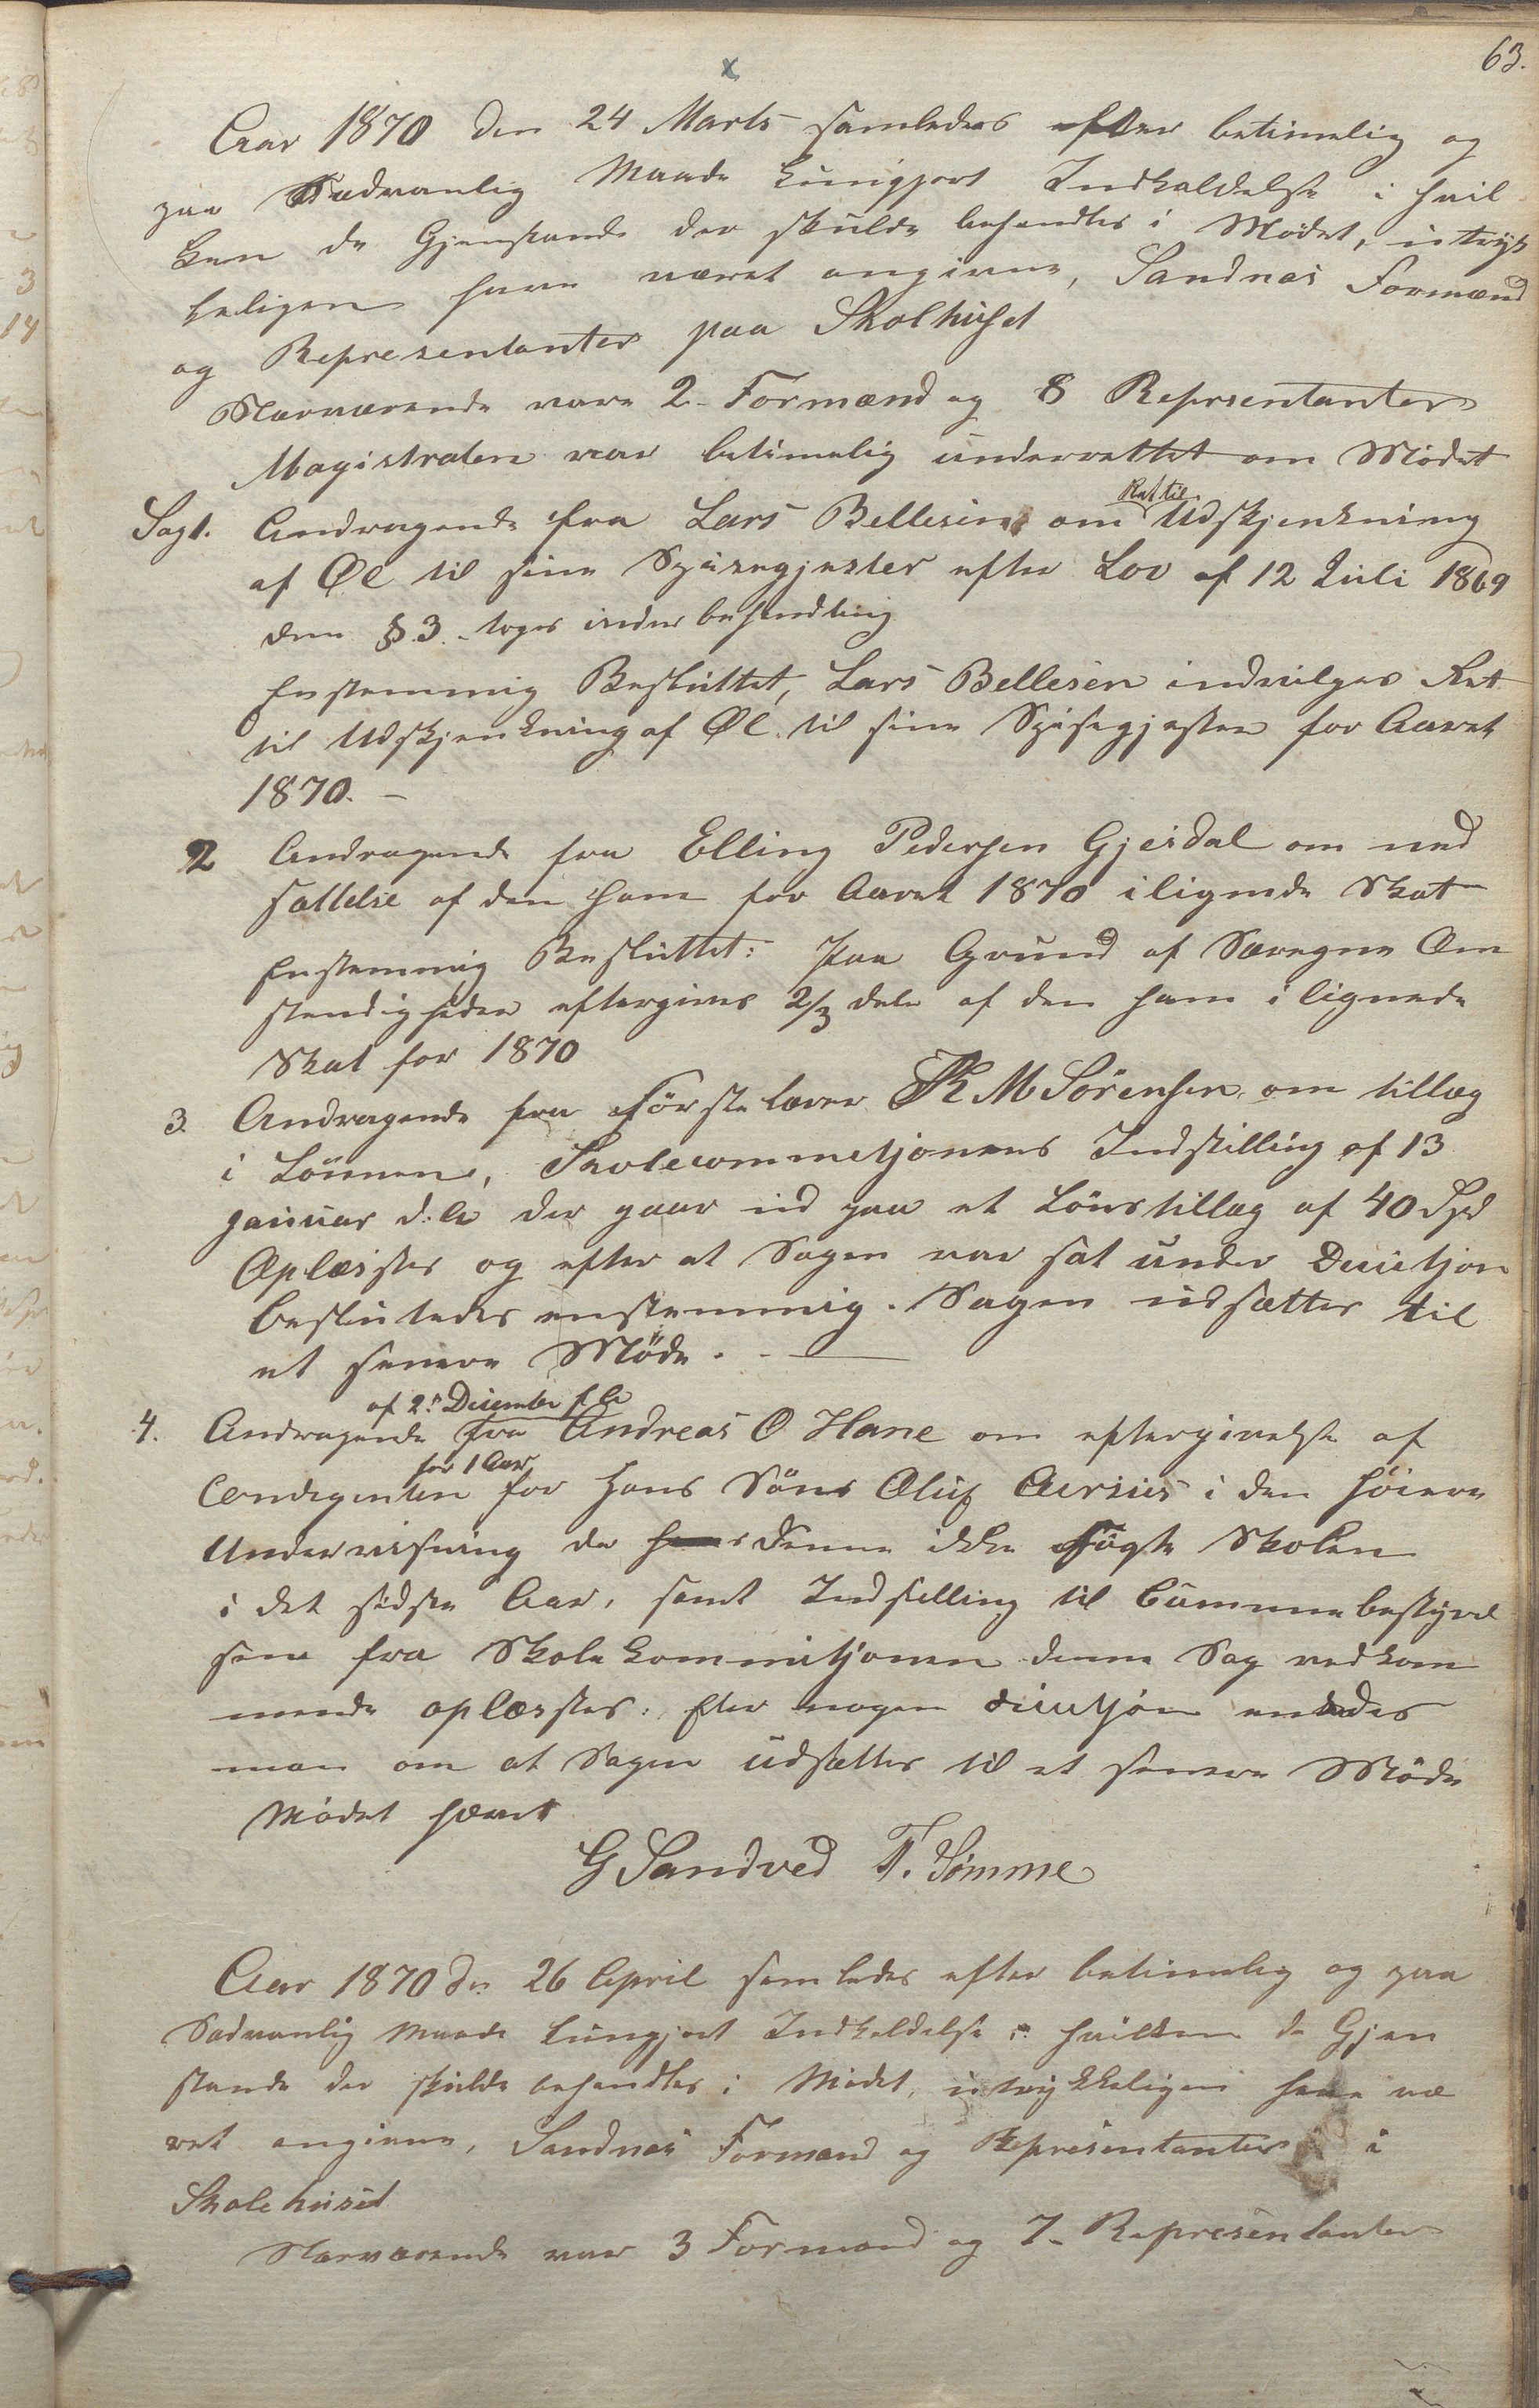 63.
x
Aar 1870 den 24 Marts samledes efter betimelig og
paa Sædvanlig Maade kungjort Indkaldelse i hvil
ken de Gjenstande der skulde behandles i Mødet, utryk
keligen have været angivne, Sandnæs Formænd
og Representanter paa Skolhuset
Nærværende vare 2 Formænd og 8 Reprsentanter
Magistraten var betimelig underrettet om Mødet
Sag 1. Andragende fra Lars Bellesen om Ret til Udskjenkning
af Øl til sine Spisegjester efter Lov af 12 Juli 1869
dens § 3. toges under behandling
Enstemmig Besluttet, Lars Bellesen indvilges Ret
til Udskjenkning af Øl til sine Spisegjester for Aaret
1870. –
2 Andragende fra Elling Pedersen Gjesdal om ned
sættelse af den ham for Aaret 1870 ilignede Skat
Enstemmig Besluttet: Paa Grund af Særegne Om
stendigheder eftergives 2/3 dele af den ham ilignede
Skat for 1870
3. Andragende fra Förstelærer K M Sörensen om tillæg
i Lönnen, Skolecommetjonens Indstilling af 13
Januar d: A der gaar ud paa et Lönstillæg af 40 Spd
Oplæstes og efter at Sagen var sat under
beslutedes enstemmig. Sagen udsættes til
et senere Möde. –
4. Andragende af 2. Desember f. A fra Andreas O Hane om eftergivelse af
for 1 Aar for Hans Söns Oluf i den höiere
Undervisning da denne ikke Sögte Skolen
i det sidste Aar, samt Indstilling til Communebestyrel
sen fra Skolekommitjonen denne Sag vedkom
mende oplæstes. Efter nogen enedes
man om at Sagen udsættes til et senere Möde
Mödet hævet
G Sandved T. Sömme
Aar 1870 den 26 April samledes efter betimelig og paa
Sædvanlig Maade kungjort Indkaldelse i hvilken de Gjen
stande der skulde behandles i Mødet, utrykkeligen have væ
ret angivne, Sandnæs Formænd og Representanter i
Skolehuset
Nærværende var 3 Formænd og 7 Representanter